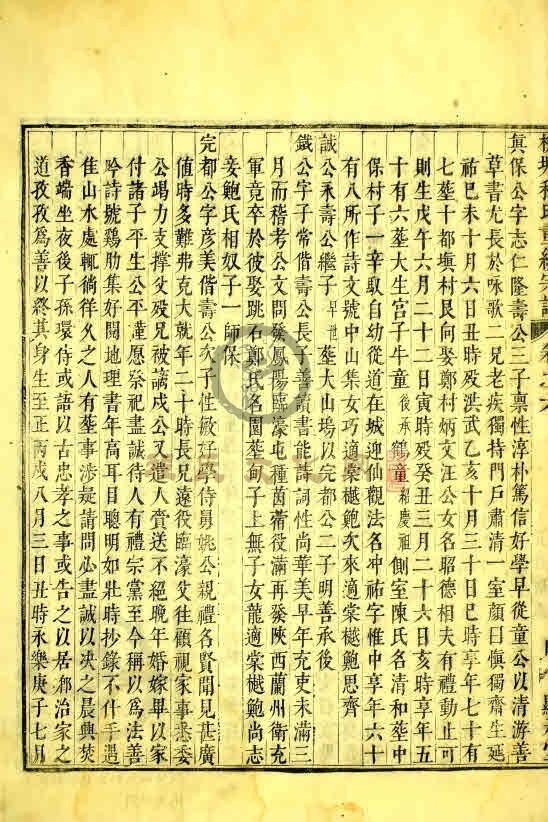 真保公字志仁隆壽公三子禀性淳朴篤信好學早從童公以清游善
草書尤長於咏歌二兄老疾獨持門戶肅清一室顏曰慎獨齋生延
祐巳未十月六日丑時殁洪武乙亥十月三十日巳時享年七十有
七塟十都塤村艮向娶鄭村炳文汪公女名昭德相夫有禮動止可
則生戊午六月二十二日寅時殁癸丑三月二十六日亥時享年五
十有六塟大生宫子牛童後承鶴童紹慶祖側室陳氏名清和塟庄
保村子一辛取自幼從道在城迎仙觀法名冲祐字惟中享年六十
有八所作詩文號中山集女巧適棠樾鮑次來適棠樾鮑思齊
誠公永壽公繼子早世塟大山塢以完都公二子明善承後
鐵公字子常偕壽公長子善讀書能詩詞性尚華美早年充吏未滿三
月而稽考公文問發鳳陽臨濠屯種茵蓿役滿再發陜西蘭州衛充
軍竟卒於彼娶跳石鄭氏名園塟旬子上無子女龍適棠樾鮑尚志
妾鮑氏相奴子一師保
完都公字彦美偕壽公次子性敏好學侍舅姚公親禮名賢聞見甚廣
值時多難弗克大就年二十時長兄遠役臨濠父往顧視家事悉委
公竭力支撑父殁兄被謫戍公又遣人賫送不絕晚年婚嫁畢以家
付諸子平生公平謹愿祭祀盡誠待人有禮宗黨至今稱以為法善
吟詩號鶏肋集好閱地理書年高耳目聰明如壯時抄錄不什手遇
佳山水處輒徜徉久之人有塟事涉疑請問必盡誠以决之晨興焚
香端坐夜後子孫環侍或語以古忠孝之事或告之以居鄉治家之
道孜孜為善以終其身生至正丙戌八月三日丑時永樂庚子七月